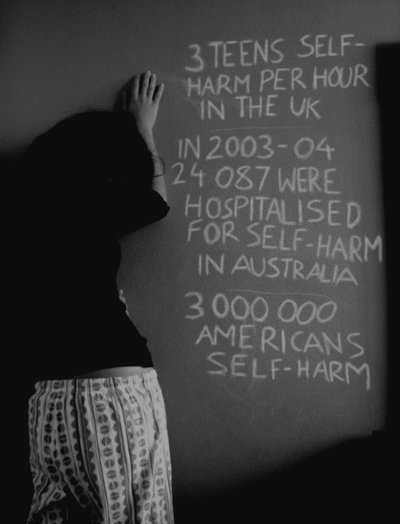 3 TEENS SELF-
HARM PER HOUR
IN THE UK
IN 2003-04
24 087 WERE
HOSPITALISED
FOR SELF-HARM
IN AUSTRALIA
3 000 000
AMERICANS
SELF-HARM